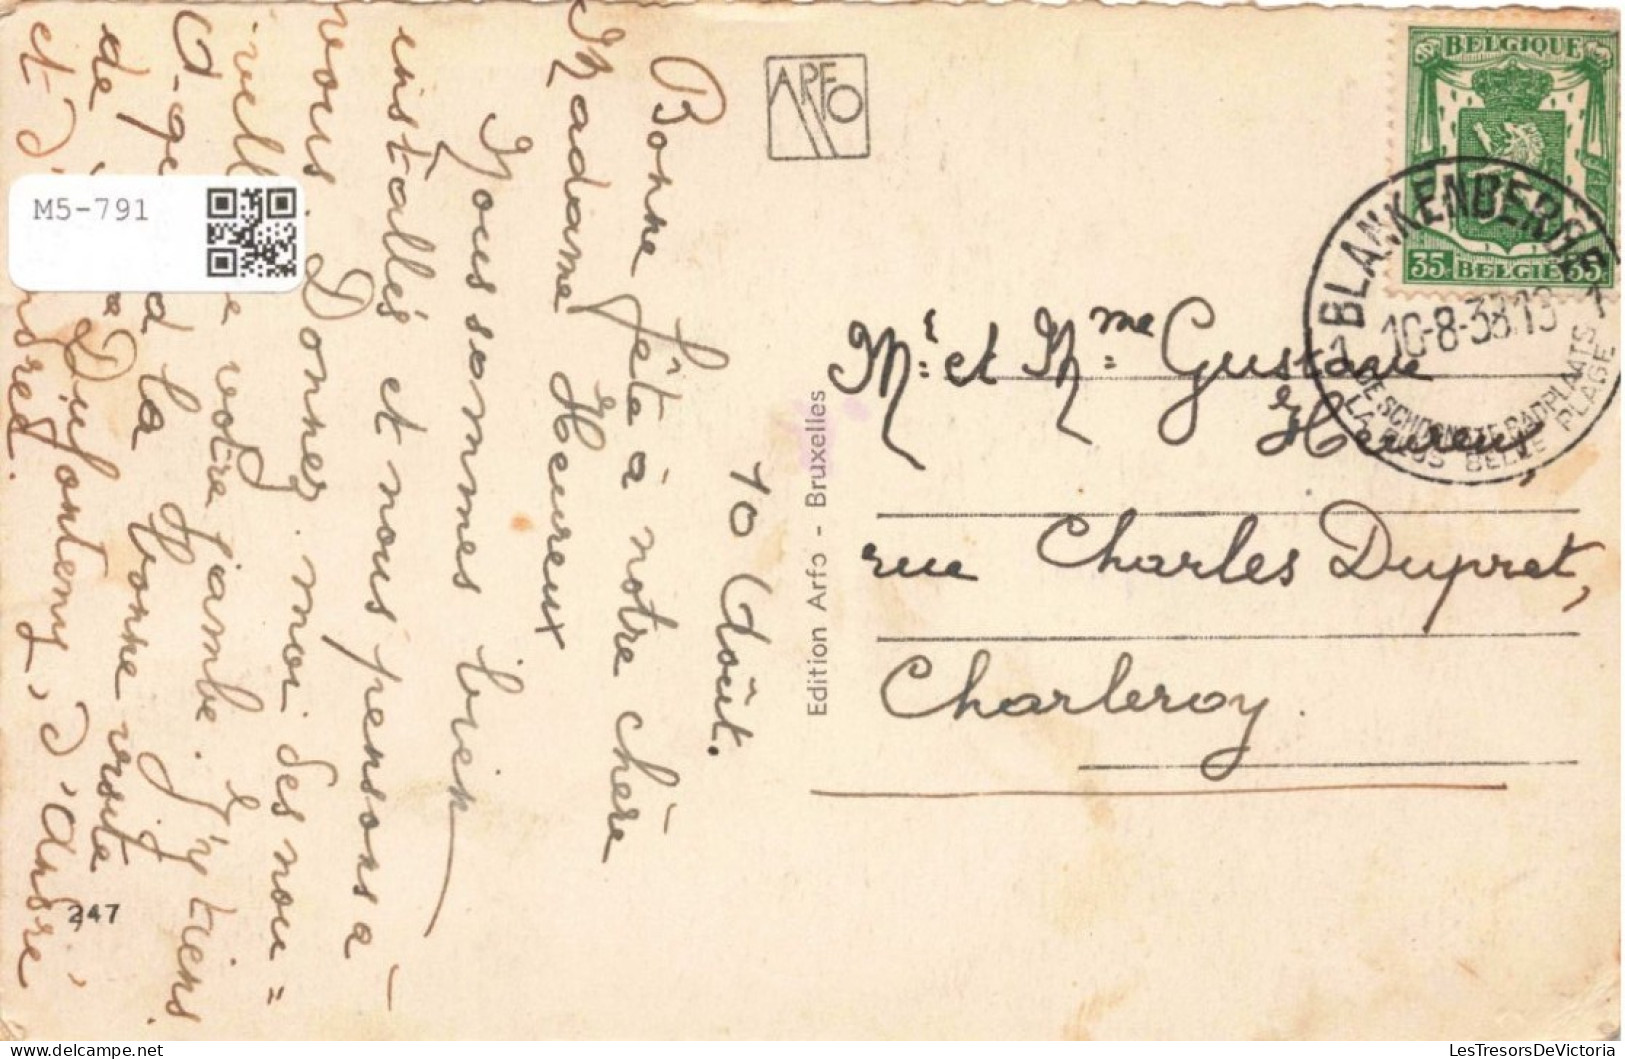 10 Août.
Bonne fête à notre chère
Madame Heureux
Nous sommes bien
installés et nous pensons à
vous. Donnez-moi des nou=
velles de votre jambe. J'y tiens
la bonne visite
de Duifonteny, d'André
et d'
ARFO
Edition Arfo - Bruxelles
247
BELGIQUE
35 BELGIË 35
1 BLANKENBERGE 1
10-8-38.13
DE SCHOONSTE BADPLAATS
LA PLUS BELLE PLAGE
Mr. et Mme Gustave
Heureux,
rue Charles Dupret,
Charleroy.
M5-791
LesTresorsDeVictoria